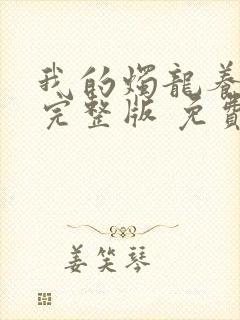 我的燭龍養
完整版 免費
姜笑琴